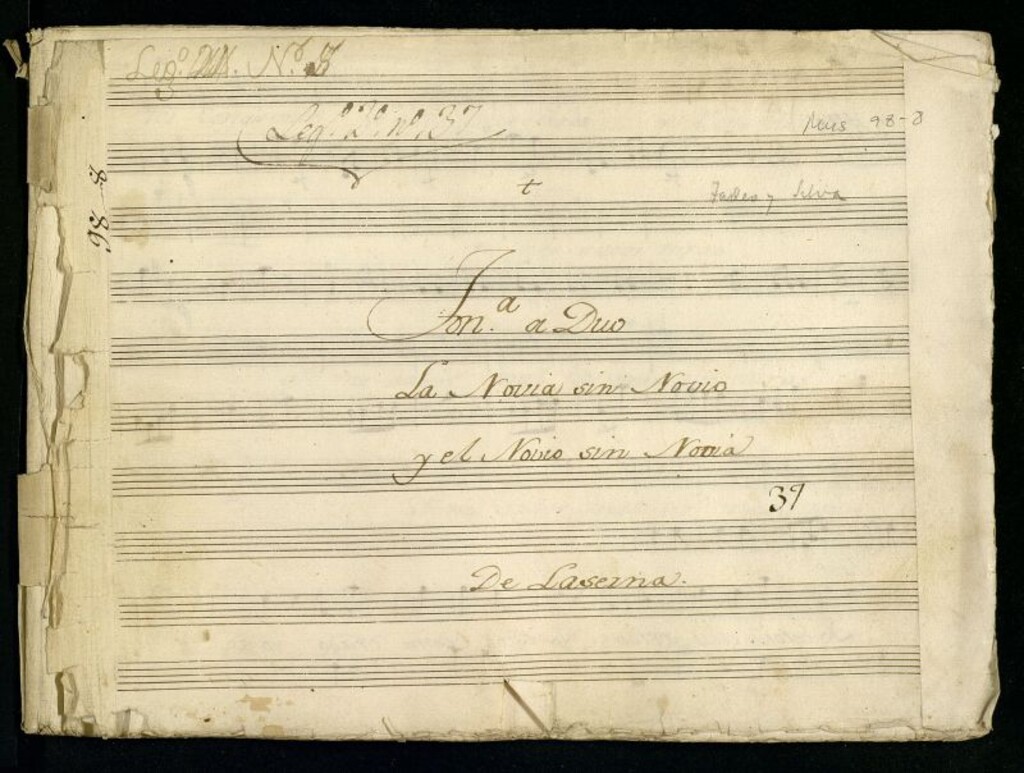 Leg.º N.º
Leg.º 2.º n.º 37
Mus 98-8
98-8
t
Tadeo y Silva
Ton.ª a Duo
La Novia sin Novio
y el Novio sin Novia
37
De Laserna.